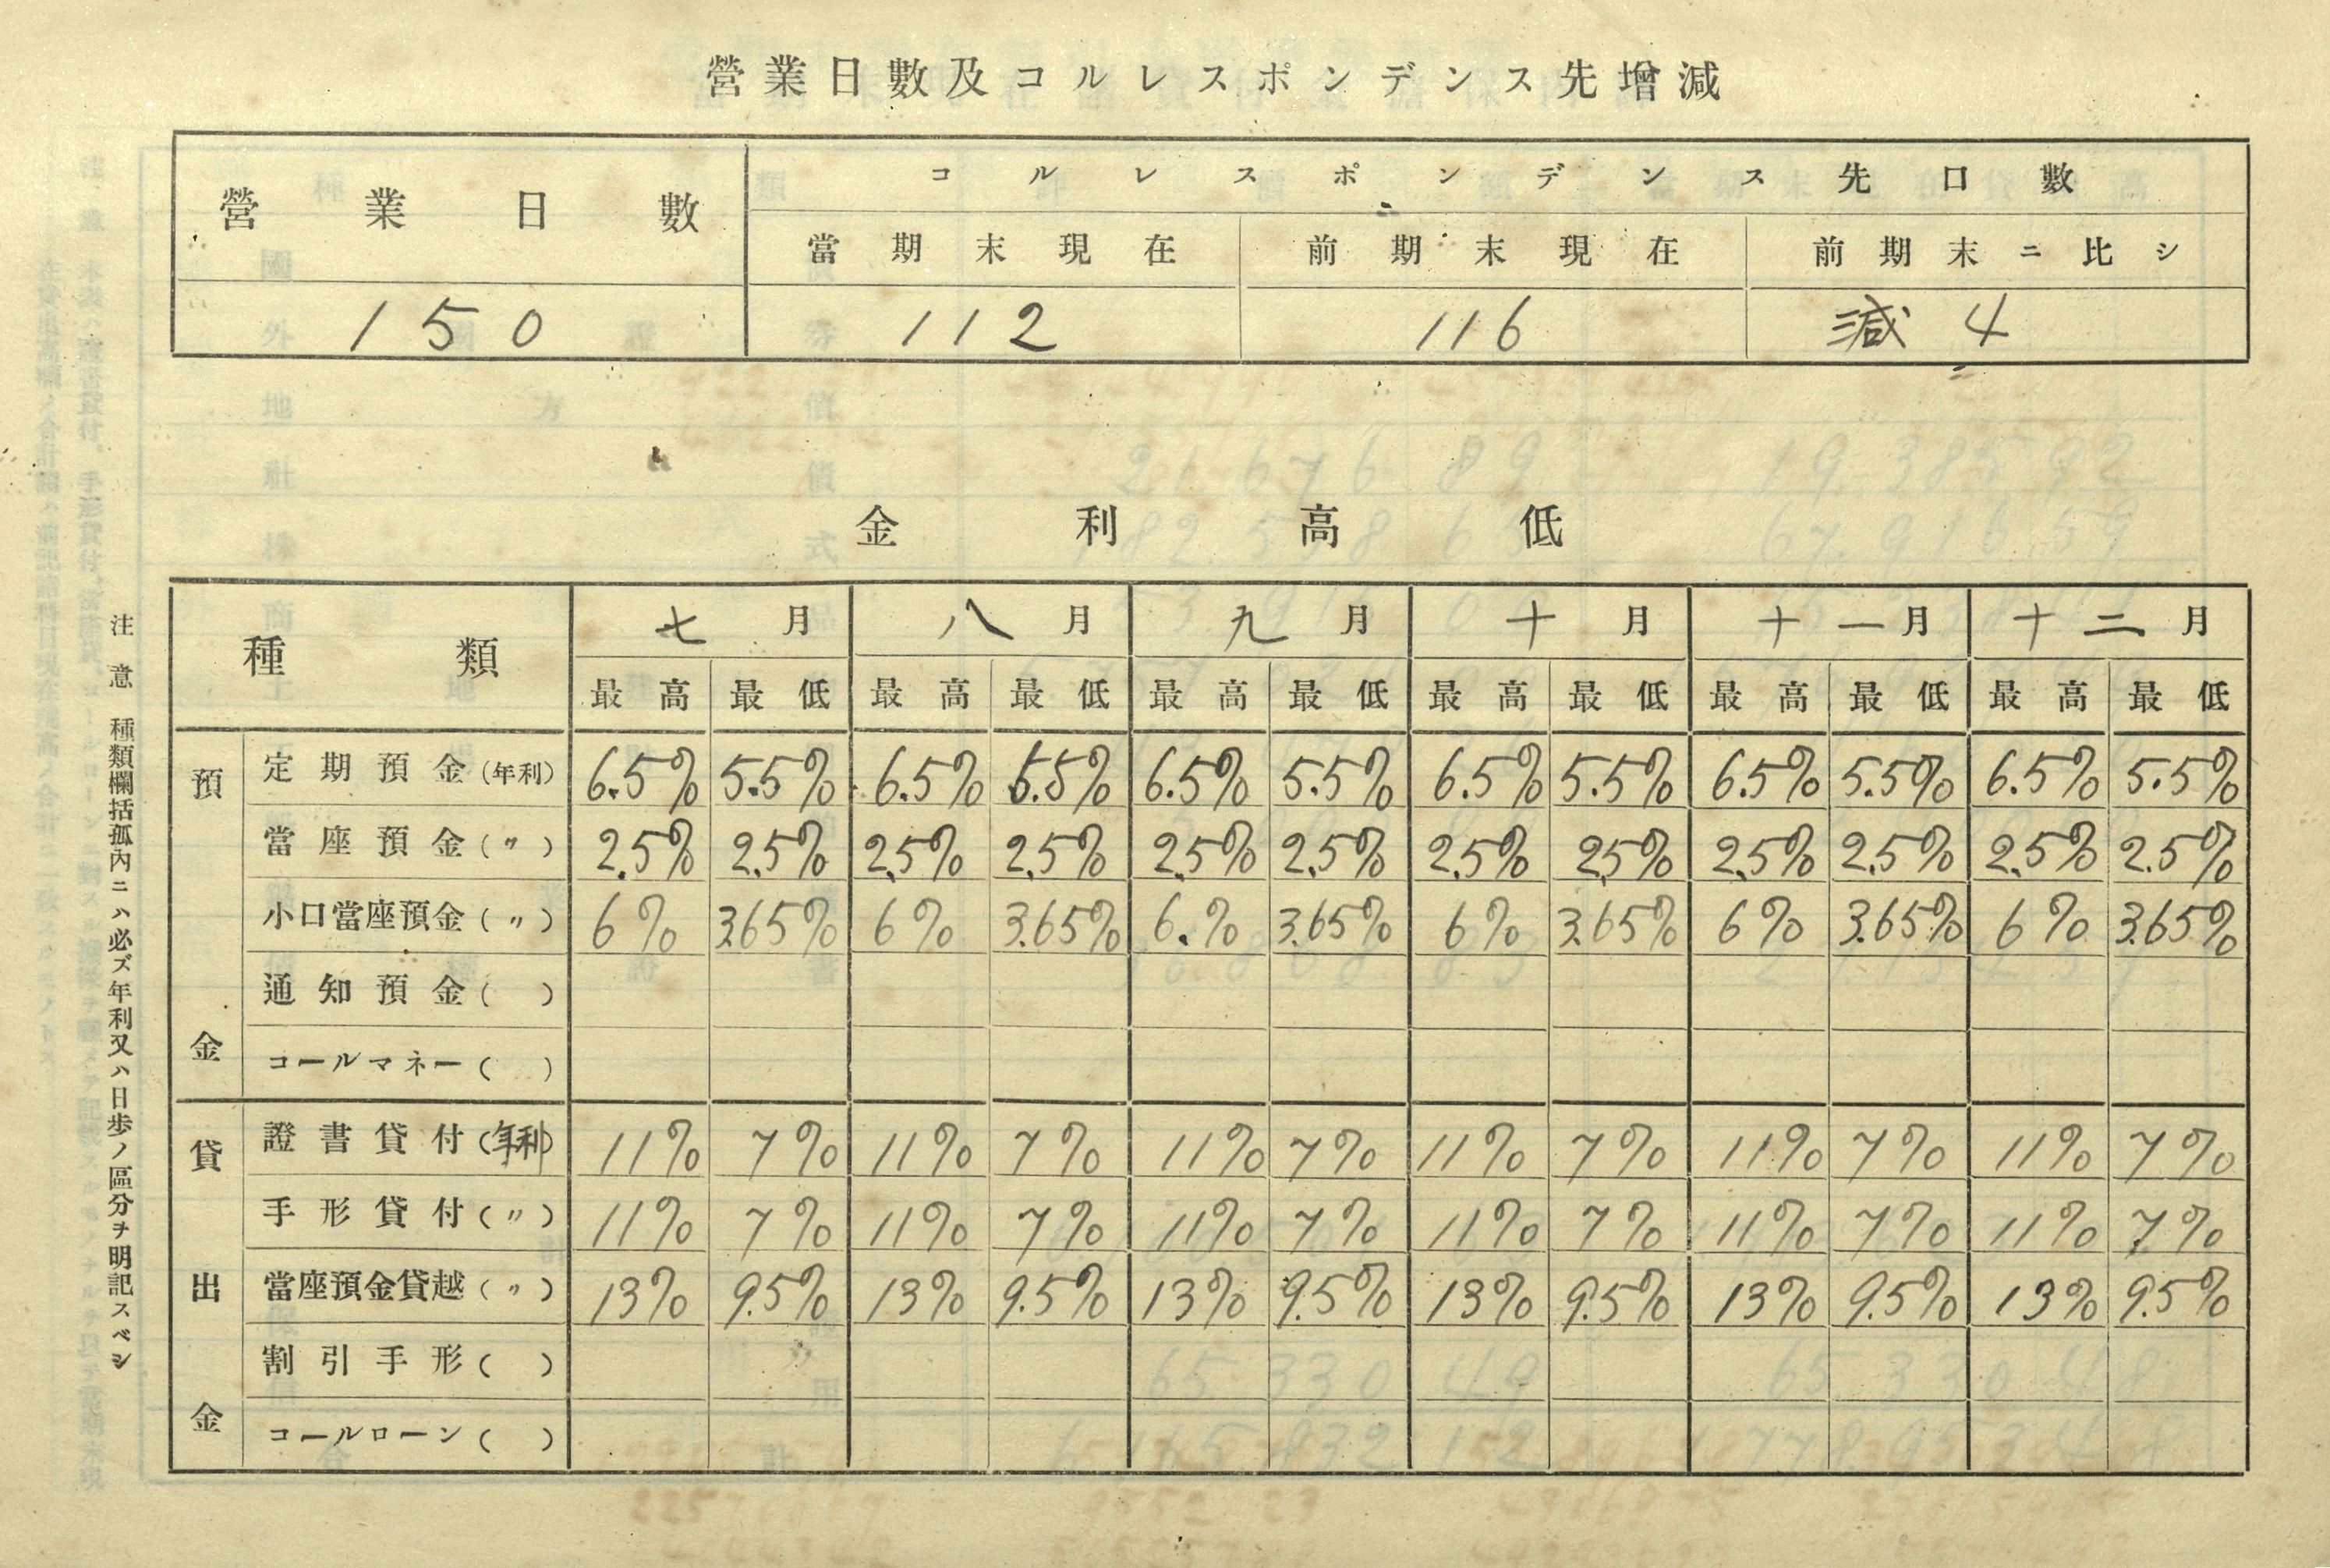 營業日數及コルレスポンデンス先增減
營業日數 コルレスポンデンス先口數
當期末現在 前期末現在 前期末ニ比シ
150 112 116 減4
金利高低
種類 七月 八月 九月 十月 十一月 十二月
最高 最低 最高 最低 最高 最低 最高 最低 最高 最低 最高 最低
預金
定期預金(年利) 6.5% 5.5% 6.5% 5.5% 6.5% 5.5% 6.5% 5.5% 6.5% 5.5% 6.5% 5.5%
當座預金(〃) 2.5% 2.5% 2.5% 2.5% 2.5% 2.5% 2.5% 2.5% 2.5% 2.5% 2.5% 2.5%
小口當座預金(〃) 6% 3.65% 6% 3.65% 6.% 3.65% 6% 3.65% 6% 3.65% 6% 3.65%
通知預金( )
コールマネー( )
貸出金
證書貸付(年利) 11% 7% 11% 7% 11% 7% 11% 7% 11% 7% 11% 7%
手形貸付(〃) 11% 7% 11% 7% 11% 7% 11% 7% 11% 7% 11% 7%
當座預金貸越(〃) 13% 9.5% 13% 9.5% 13% 9.5% 13% 9.5% 13% 9.5% 13% 9.5%
割引手形( )
コールローン( )
注意 種類欄括孤內ニハ必ズ年利又ハ日歩ノ區分ヲ明記スベシ